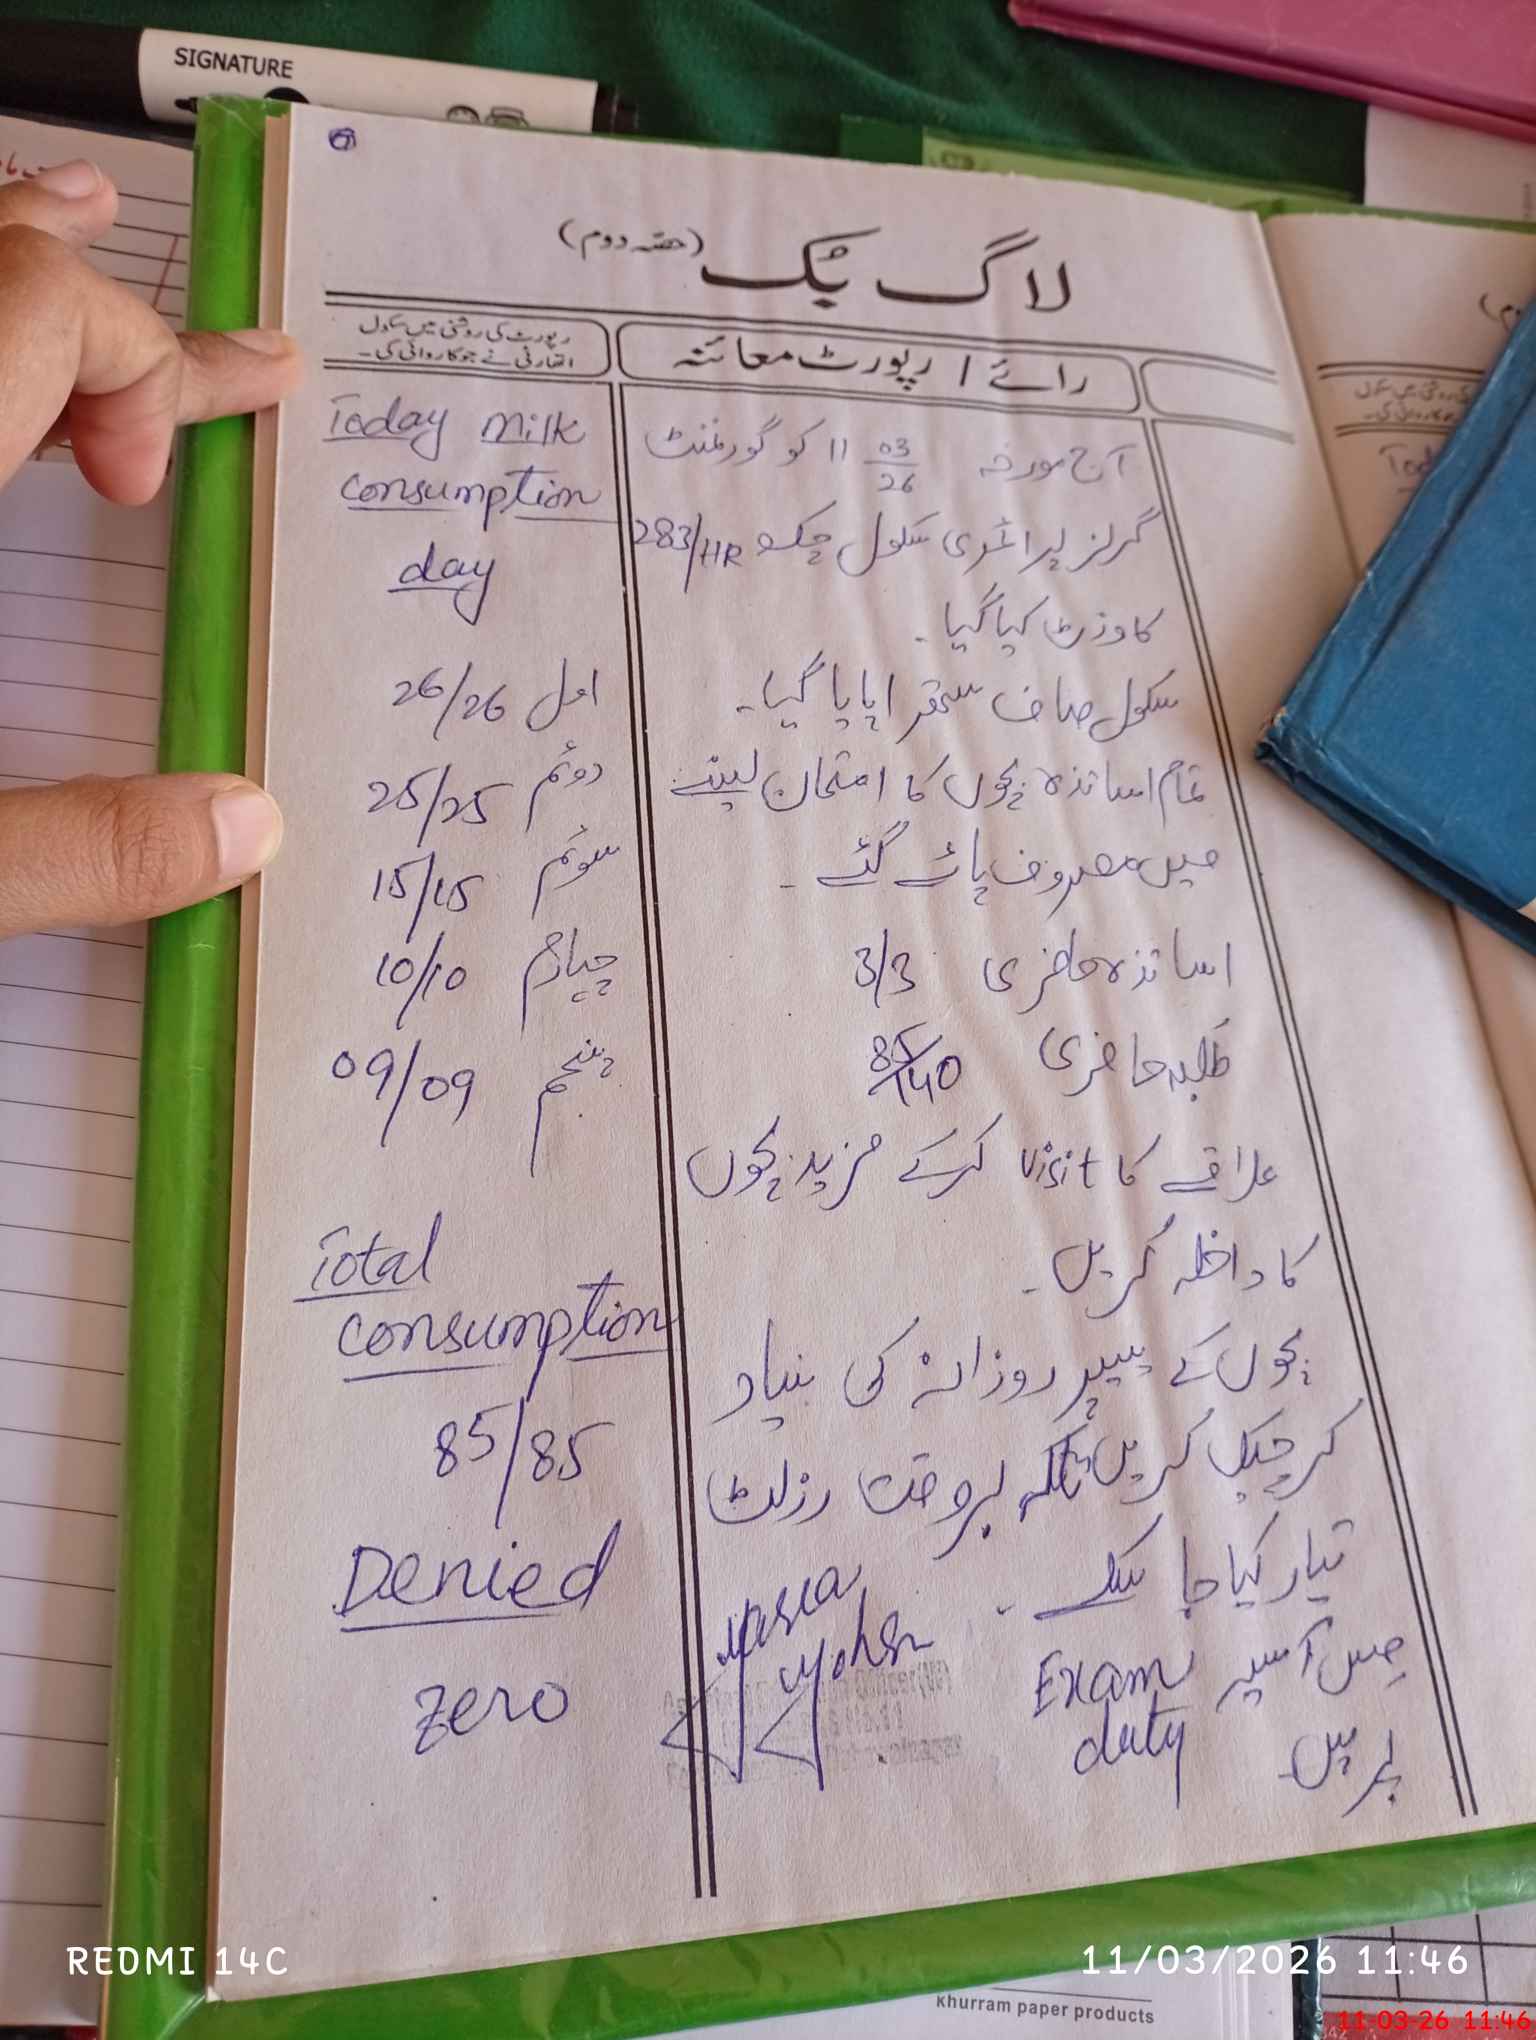 SIGNATURE
لاگ بک (ہفتہ دوم)
رائے / رپورٹ معائنہ
آج مورخہ 11 03/26 کو گورنمنٹ
گرلز پرائمری سکول چک 283/HR
کا وزٹ کیا گیا۔
سکول صاف ستھرا پایا گیا۔
تمام اساتذہ بچوں کا امتحان لینے
میں مصروف پائے گئے۔
اساتذہ حاضری 3/3
طلبہ حاضری 85/140
علاقے کا visit کرکے مزید بچوں
کا داخلہ کریں۔
بچوں کے پیپر روزانہ کی بنیاد
کر چیک کریں تاکہ بروقت رزلٹ
تیار کیا جا سکے۔
مس آسیہ Exam duty
پر ہیں۔
رپورٹ کی روشنی میں سکول
اتھارٹی نے جو کاروائی کی۔
Today Milk
consumption
day
اول 26/26
دوئم 25/25
سوئم 15/15
چہارم 10/10
پنجم 09/09
Total
consumption
85/85
Denied
zero
REDMI 14C
11/03/2026 11:46
Khurram paper products
11-03-26 11:46